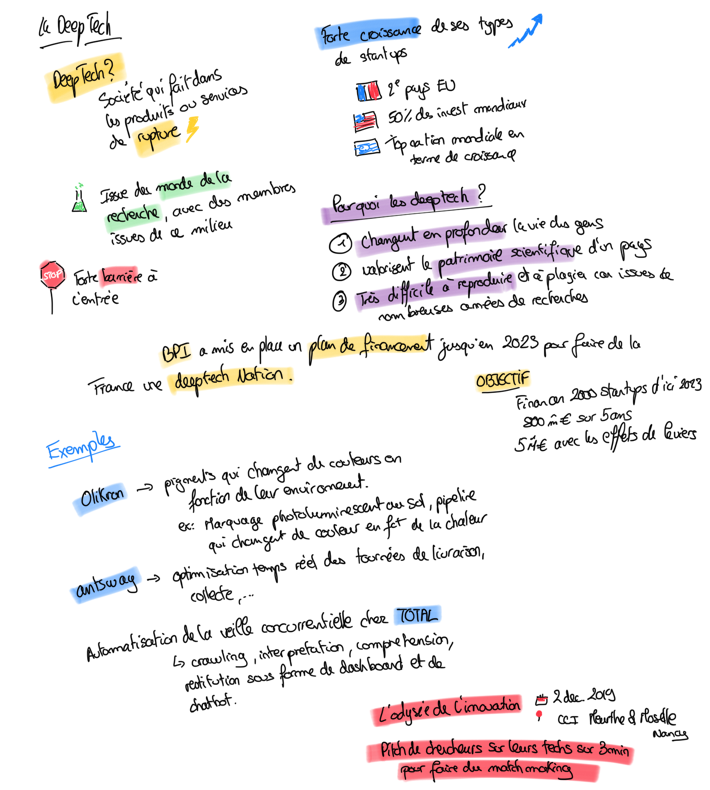 La DeepTech
DeepTech?
Société qui fait dans
les produits ou services
de rupture
Issue du monde de la
recherche, avec des membres
issues de ce milieu
STOP
Forte barrière à
l'entrée
Forte croissance de ses types
de startups
2e pays EU
50% des invest mondiaux
Top nation mondiale en
terme de croissance
Pourquoi les deeptech?
1 Changent en profondeur la vie des gens
2 valorisent le patrimoine scientifique d'un pays
3 Très difficile à reproduire et à plagier car issues de
nombreuses années de recherches
BPI a mis en place un plan de financement jusqu'en 2023 pour faire de la
France une deeptech Nation.
OBJECTIF
Financer 2000 startups d'ici 2023
800 m€ sur 5 ans
5 M€ avec les effets de leviers
Exemples
Olikron → pigments qui changent de couleurs en
fonction de leur environment.
ex: Marquage photoluminescent au sol, pipeline
qui changent de couleur en fct de la chaleur
antsway → optimisation temps réel des tournées de livraison,
collecte,...
Automatisation de la veille concurrentielle chez TOTAL
↳ crawling, interpretation, comprehension,
restitution sous forme de dashboard et de
chatbot.
L'odysée de l'innovation
2 dec 2019
CCI Meurthe & Moselle
Nancy
Pitch de chercheurs sur leurs techs sur 3min
pour faire du matchmaking